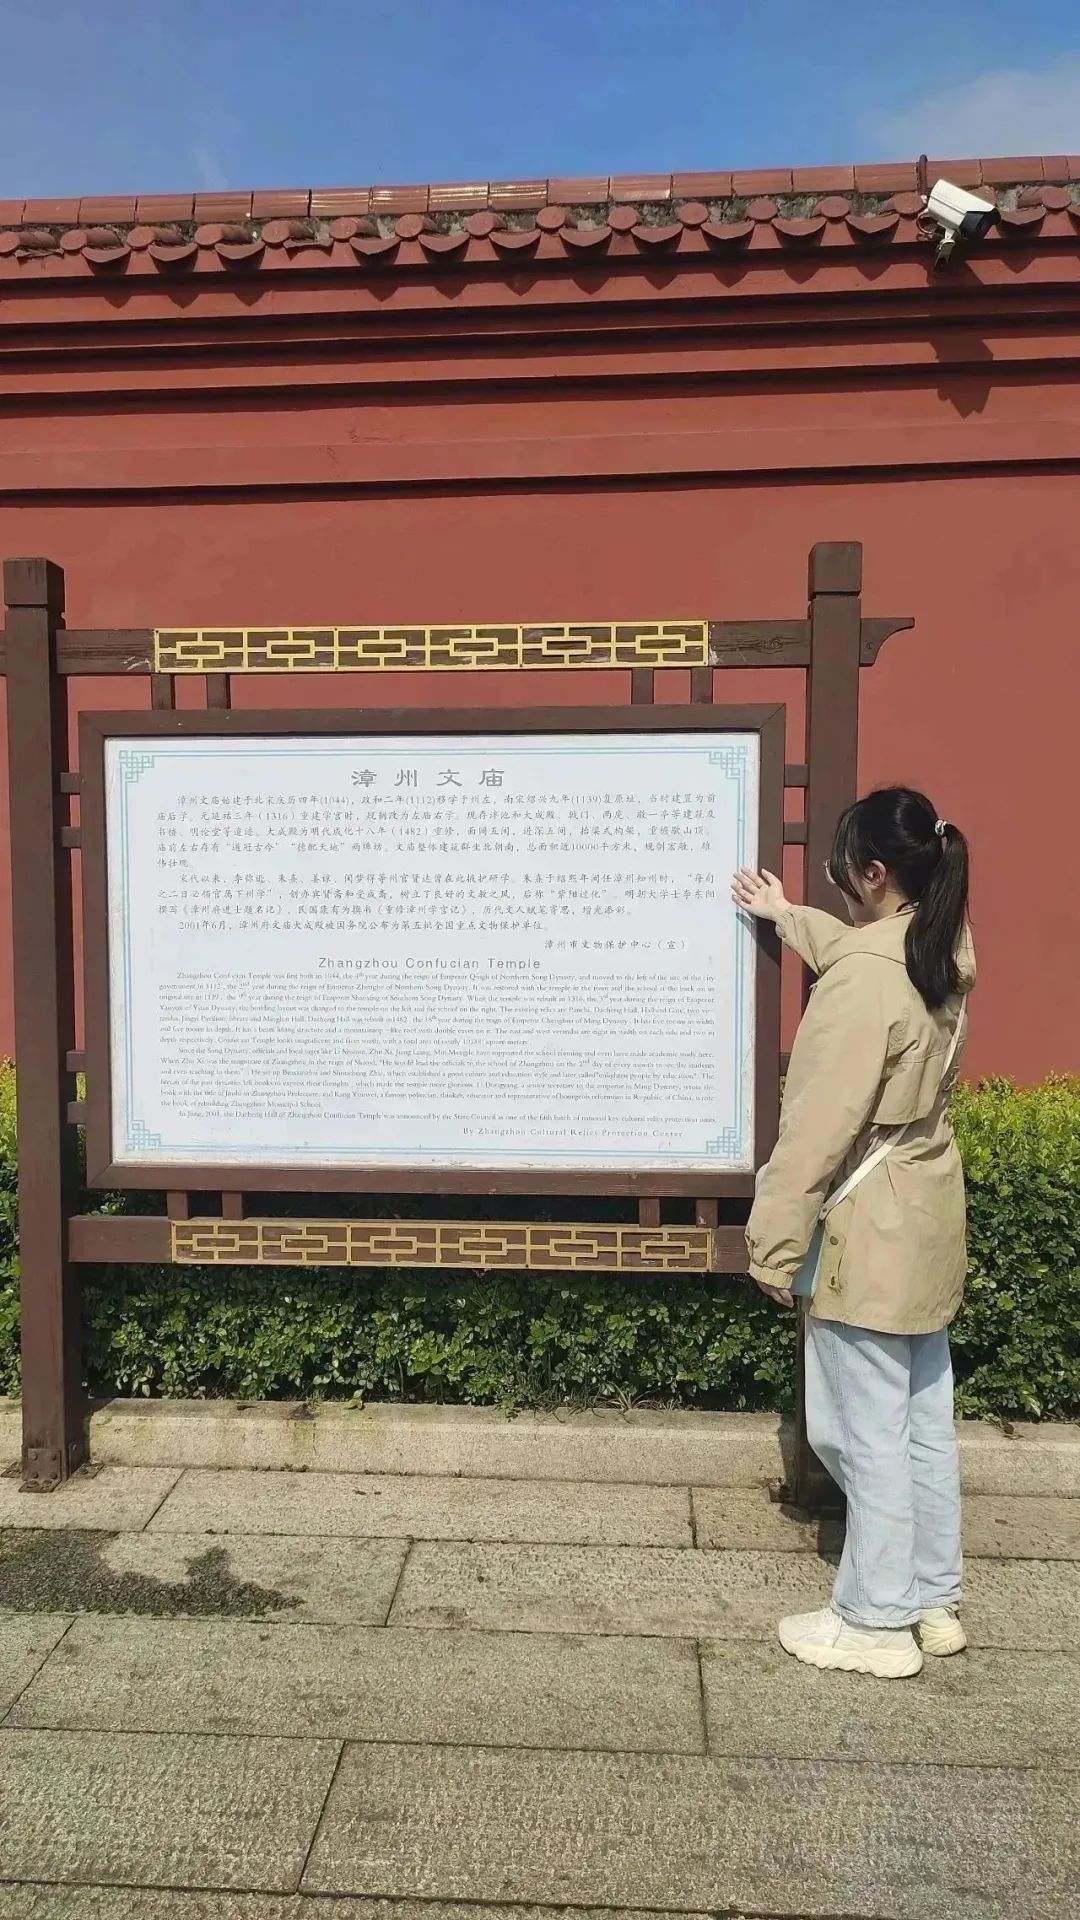 漳州文庙
漳州文庙始建于北宋庆历四年(1044)，政和二年(1112)移学于州左，南宋绍兴九年(1139)复原址，当时建置为前
庙后学。元延祐三年（1316）重建学宫时，规制改为左庙右学。现存泮池和大成殿、戟门、两庑、敬一亭等建筑及
书楼、明伦堂等遗迹。大成殿为明代成化十八年（1482）重修，面阔五间，进深五间，抬梁式构架，重檐歇山顶。
庙前左右存有“道冠古今”“德配天地”两牌坊。文庙整体建筑群坐北朝南，总面积近10000平方米，规制宏敞，雄
伟壮观。
宋代以来，李弥逊、朱熹、姜谅、闵梦得等州官贤达曾在此掖护研学。朱熹于绍熙年间任漳州知州时，“每旬
之二日必领官属下州学”，创办宾贤斋和受成斋，树立了良好的文教之风，后称“紫阳过化”。明朝大学士李东阳
撰写《漳州府进士题名记》，民国康有为撰书《重修漳州学宫记》，历代文人赋笔寄思，增光添彩。
2001年6月，漳州府文庙大成殿被国务院公布为第五批全国重点文物保护单位。
漳州市文物保护中心（宣）
Zhangzhou Confucian Temple
Zhangzhou Confucian Temple was first built in 1044, the 4th year during the reign of Emperor Qingli of Northern Song Dynasty, and moved to the left of the site of the city
government in 1112, the 2nd year during the reign of Emperor Zhenghe of Northern Song Dynasty. It was restored with the temple in the front and the school in the back on its
original site in 1139, the 9th year during the reign of Emperor Shaoxing of Southern Song Dynasty. When the temple was rebuilt in 1316, the 3rd year during the reign of Emperor
Yanyou of Yuan Dynasty, the building layout was changed to the temple on the left and the school on the right. The existing relics are Panchi, Dacheng Hall, Halberd Gate, two
Jingyi Pavilion, library and Minglun Hall. Dacheng Hall was rebuilt in 1482, the 18th year during the reign of Emperor Chenghua of Ming Dynasty. It has five rooms in width
and five rooms in depth. It has a beam lifting structure and a mountaintop-like roof with double eaves on it. The east and west verandas are eight in width on each side and two in
depth respectively. Confucian Temple looks magnificent and faces south, with a total area of nearly 10,000 square meters.
Since the Song Dynasty, officials and local sages like Li Mixun, Zhu Xi, Jiang Liang, Min Mengde have supported the school running and even have made academic study here.
When Zhu Xi was the magistrate of Zhangzhou in the reign of Shaoxi, "He would lead the officials to the school of Zhangzhou on the 2nd day of every month to see the students
and even teaching to them". He set up Binxianzhai and Shouchengzhai, which established a good culture and education style and later called "enlighten people by education". The
literati of the past dynasties left books to express their thoughts, which made the temple more glorious. Li Dongyang, a senior secretary to the emperor in Ming Dynasty, wrote the
book with the title of Jinshi in Zhangzhou Prefecture, and Kang Youwei, a famous politician, thinker, educator and representative of bourgeois reformism in Republic of China, wrote
the book of rebuilding Zhangzhou Municipal School.
In June, 2001, the Dacheng Hall of Zhangzhou Confucian Temple was announced by the State Council as one of the fifth batch of national key cultural relics protection units.
By Zhangzhou Cultural Relics Protection Center